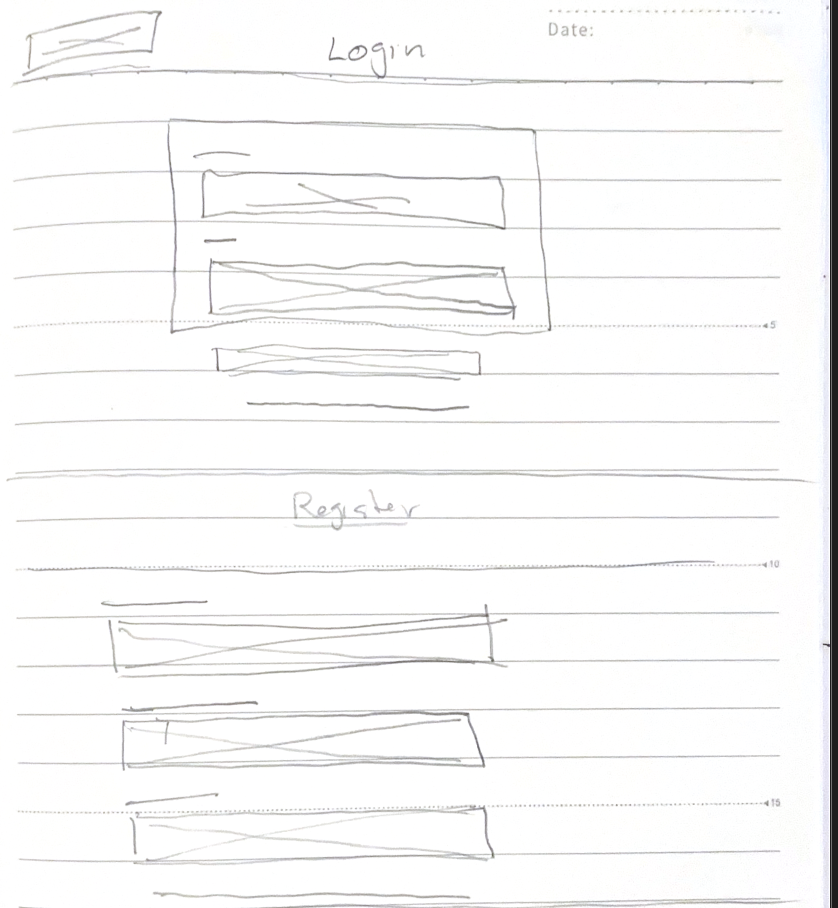 Date:
Login
5
Register
10
15